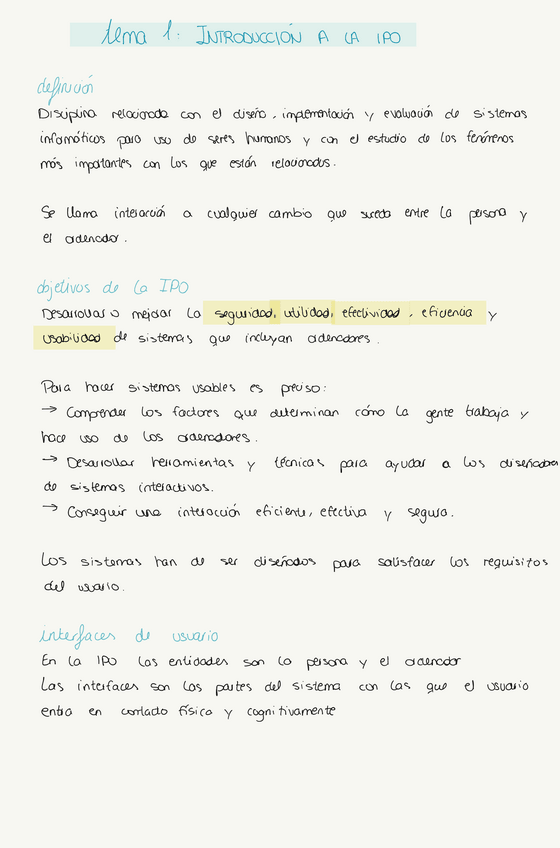 tema 1: INTRODUCCIÓN A LA IPO
definición
Disciplina relacionada con el diseño, implementación y evaluación de sistemas
informáticos para uso de seres humanos y con el estudio de los fenómenos
más importantes con los que están relacionados.
Se llama interacción a cualquier cambio que suceda entre la persona y
el ordenador.
objetivos de la IPO
Desarrollar o mejorar la seguridad, utilidad, efectividad, eficiencia y
usabilidad de sistemas que incluyan ordenadores.
Para hacer sistemas usables es preciso:
→ Comprender los factores que determinan cómo la gente trabaja y
hace uso de los ordenadores.
→ Desarrollar herramientas y técnicas para ayudar a los diseñadores
de sistemas interactivos.
→ Conseguir una interacción eficiente, efectiva y segura.
Los sistemas han de ser diseñados para satisfacer los requisitos
del usuario.
interfaces de usuario
En la IPO las entidades son la persona y el ordenador
Las interfaces son las partes del sistema con las que el usuario
entra en contacto física y cognitivamente